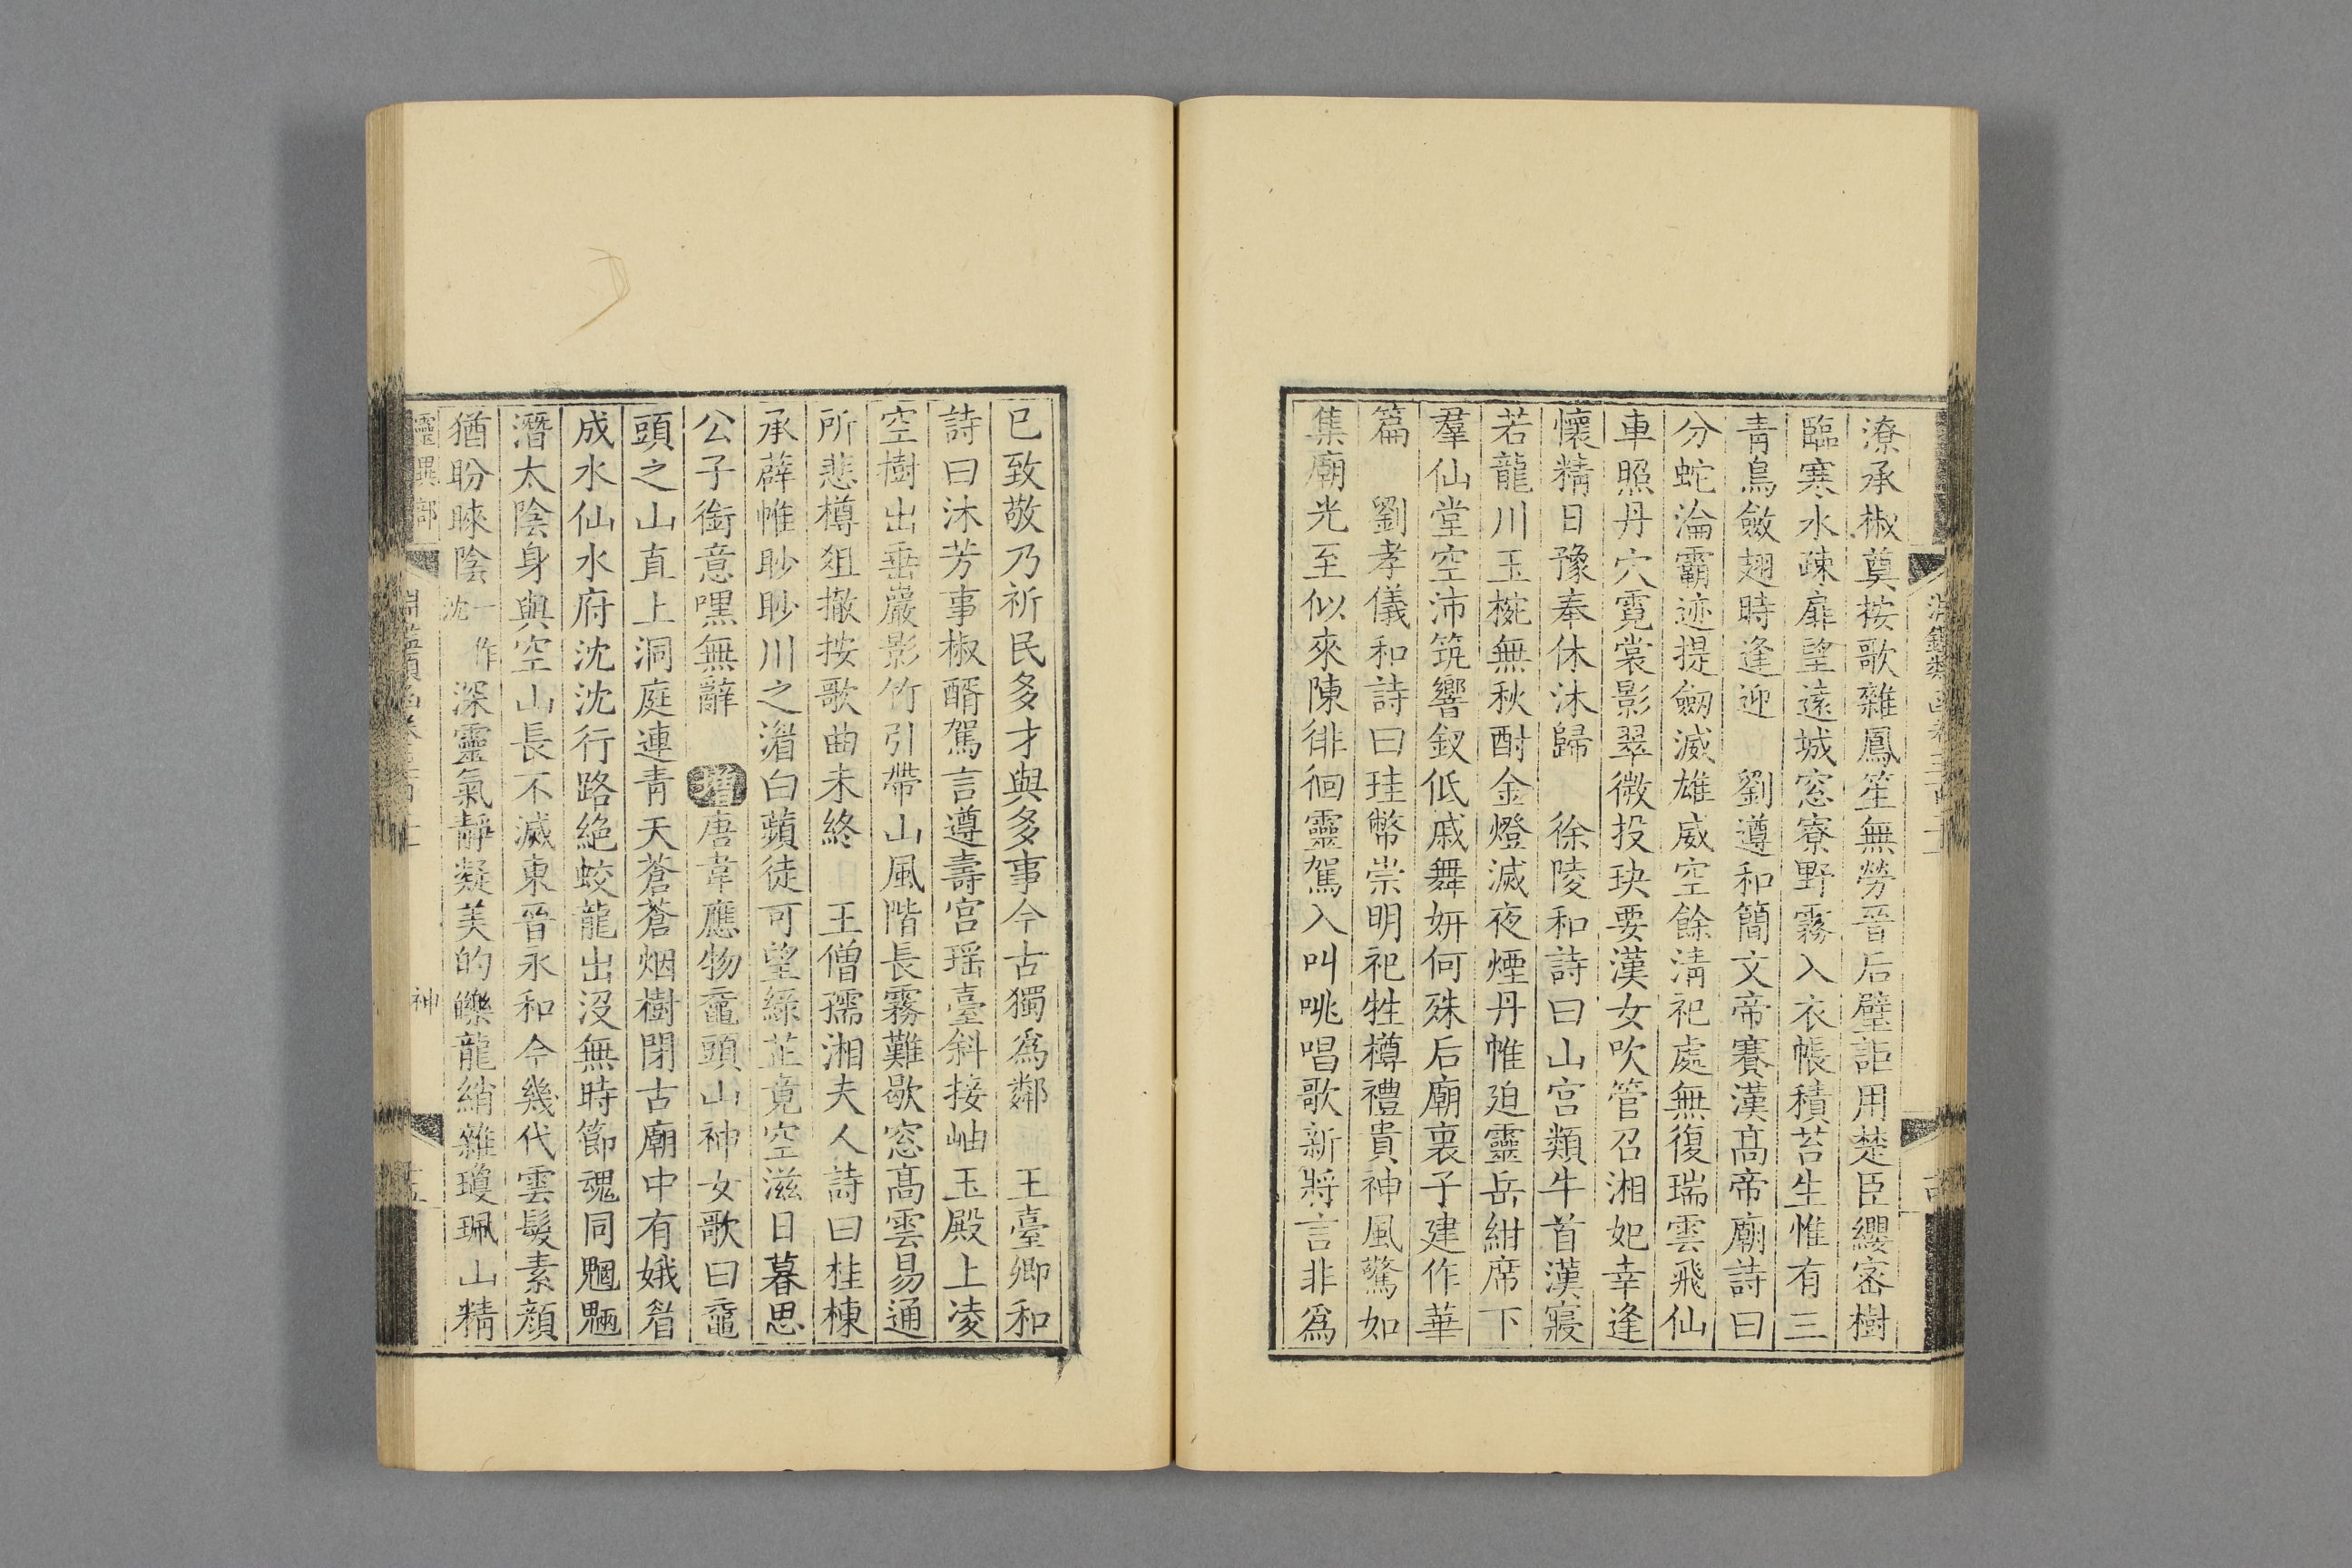 潦承椒奠按歌雜鳳笙無勞晉后璧詎用楚臣纓密樹
臨寒水疎扉望遠城窓寮野霧入衣帳積苔生惟有三
青鳥斂翅時逢迎 劉遵和簡文帝賽漢高帝廟詩曰
分蛇淪霸迹提劒滅雄威空餘清祀處無復瑞雲飛仙
車照丹穴霓裳影翠微投玦要漢女吹管召湘妃幸逢
懷精日豫奉休沐歸 徐陵和詩曰山宮類牛首漢寢
若龍川玉椀無秋酎金燈滅夜煙丹帷迫靈岳紺席下
羣仙堂空沛筑響釵低戚舞妍何殊后廟裏子建作華
篇 劉孝儀和詩曰珪幣崇明祀牲樽禮貴神風驚如
集廟光至似來陳徘徊靈駕入叫咷唱歌新將言非爲
已致敬乃祈民多才與多事今古獨爲鄰 王臺卿和
詩曰沐芳事椒醑駕言遵壽宮瑶臺斜接岫玉殿上凌
空樹出垂巖影竹引帶山風階長霧難歇窓高雲易通
所悲樽俎撤按歌曲未終 王僧孺湘夫人詩曰桂棟
承薜帷眇眇川之湄白蘋徒可望綠芷竟空滋日暮思
公子銜意嘿無辭 增唐韋應物黿頭山神女歌曰黿
頭之山直上洞庭連青天蒼蒼烟樹閉古廟中有娥眉
成水仙水府沈沈行路絶蛟龍出沒無時節魂同魍魎
潛太陰身與空山長不滅東晉永和今幾代雲髮素顔
猶盼睞陰一作沈深靈氣靜凝美的皪龍綃雜瓊珮山精
靈異部
神